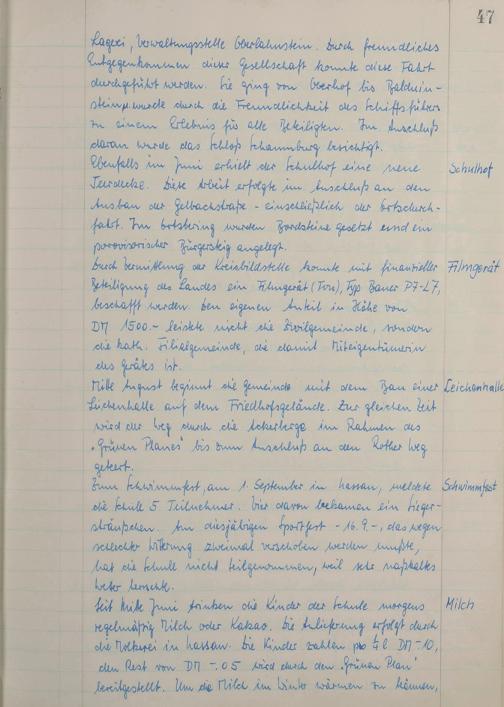 47
Lagerei, Verwaltungsstelle Oberlahnstein. Durch freundliches
Entgegenkommen dieser Gesellschaft konnte diese Fahrt
durchgeführt werden. Sie ging von Oberhof bis Balduin-
stein u. wurde durch die Freundlichkeit des Schiffsführers
zu einem Erlebnis für alle Beteiligten. Im Anschluß
daran wurde das Schloß Schaumburg besichtigt.
Ebenfalls im Juni erhielt der Schulhof eine neue Schulhof
Teerdecke. Diese Arbeit erfolgte im Anschluß an den
Ausbau der Gelbachstraße - einschließlich der Ortsdurch-
fahrt. Im Ortsbering wurden Bordsteine gesetzt und ein
provisorischer Bürgersteig angelegt.
Durch Vermittlung der Kreisbildstelle konnte mit finanzieller Filmgerät
Beteiligung des Landes ein Filmgerät (Ton), Typ Bauer P7-L7,
beschafft werden. Den eigenen Anteil in Höhe von
DM 1500.- leistete nicht die Zivilgemeinde, sondern
die kath. Filialgemeinde, die damit Miteigentümerin
des Geräts ist.
Mitte August beginnt die Gemeinde mit dem Bau einer Leichenhalle
Leichenhalle auf dem Friedhofsgelände. Zur gleichen Zeit
wird der Weg durch die Ackerberge im Rahmen des
"Grünen Planes" bis zum Anschluß an den Rother Weg
geteert.
Zum Schwimmfest, am 1. September in Nassau, meldete Schwimmfest
die Schule 5 Teilnehmer. Vier davon bekamen ein Sieger-
sträußchen. Am diesjährigen Sportfest - 16.9.-, das wegen
schlechter Witterung zweimal verschoben werden mußte,
hat die Schule nicht teilgenommen, weil sehr naßkaltes
Wetter herrschte.
Seit Mitte Juni trinken die Kinder der Schule morgens Milch
regelmäßig Milch oder Kakao. Die Anlieferung erfolgt durch
die Molkerei in Nassau. Die Kinder zahlen pro ¼ l DM -.10,
den Rest von DM -.05 wird durch den "Grünen Plan"
bereitgestellt. Um die Milch im Winter wärmen zu können,